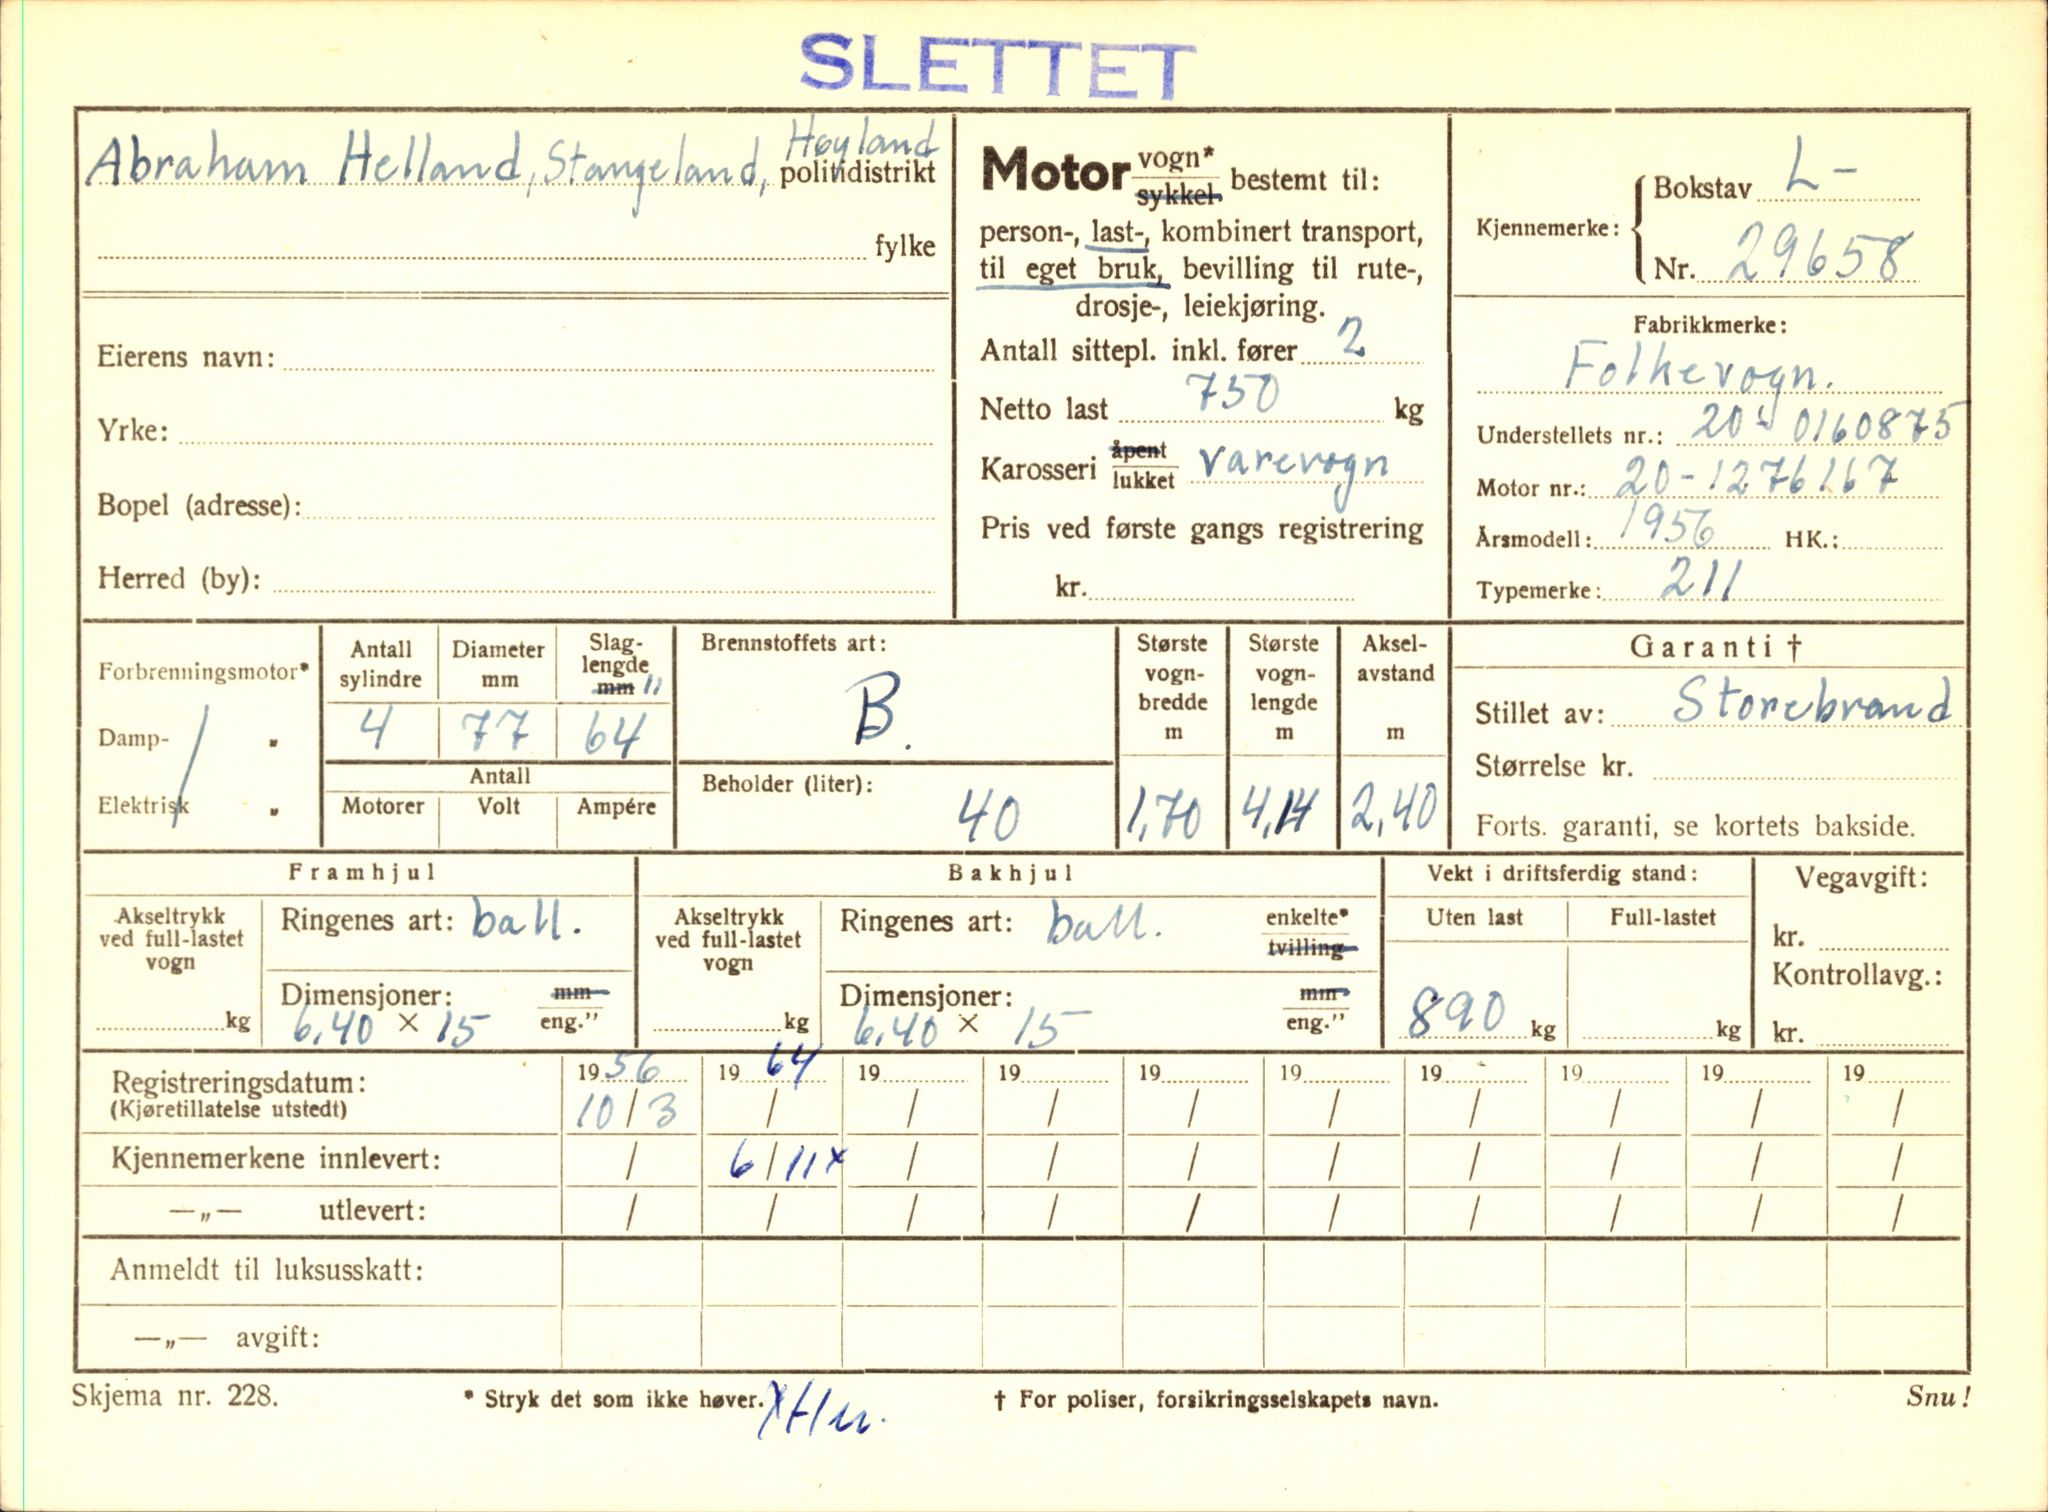 SLETTET
Abraham Helland, Stangeland, Høyland
politidistrikt
fylke
Eierens navn:
Yrke:
Bopel (adresse):
Herred (by):
Motor vogn* / sykkel bestemt til:
person-, last-, kombinert transport,
til eget bruk, bevilling til rute-,
drosje-, leiekjøring.
Antall sittepl. inkl. fører 2
Netto last 750 kg
Karosseri åpent / lukket varevogn
Pris ved første gangs registrering
kr.
Kjennemerke: Bokstav L-
Nr. 29658
Fabrikkmerke:
Folkevogn.
Understellets nr.: 20-0160875
Motor nr.: 20-1276167
Årsmodell: 1956 HK.:
Typemerke: 211
Forbrenningsmotor*
Damp- "
Elektrisk "
Antall sylindre 4
Diameter mm 77
Slag-lengde mm " 64
Antall
Motorer Volt Ampére
Brennstoffets art:
B.
Beholder (liter):
40
Største vogn-bredde m 1,70
Største vogn-lengde m 4,14
Aksel-avstand m 2,40
Garanti †
Stillet av: Storebrand
Størrelse kr.
Forts. garanti, se kortets bakside.
Framhjul
Akseltrykk ved full-lastet vogn
kg
Ringenes art: ball.
Dimensjoner: mm / eng."
6,40 × 15
Bakhjul
Akseltrykk ved full-lastet vogn
kg
Ringenes art: ball. enkelte* / tvilling
Dimensjoner: mm / eng."
6,40 × 15
Vekt i driftsferdig stand:
Uten last Full-lastet
890 kg kg
Vegavgift:
kr.
Kontrollavg.:
kr.
Registreringsdatum: 1956 1964 19 19 19 19 19 19 19 19
(Kjøretillatelse utstedt) 10/3 / / / / / / / / /
Kjennemerkene innlevert: / 6/11x / / / / / / / /
—„— utlevert: / / / / / / / / / /
Anmeldt til luksusskatt:
—„— avgift:
Skjema nr. 228. * Stryk det som ikke høver. † For poliser, forsikringsselskapets navn. Snu!